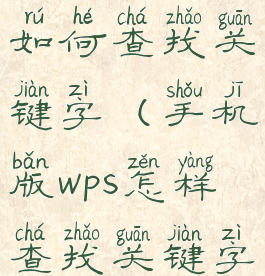 rú hé chá zhǎo guān
如何查找关
jiàn zì shǒu jī
键字（手机
bǎn zěn yàng
版wps怎样
chá zhǎo guān jiàn zì
查找关键字